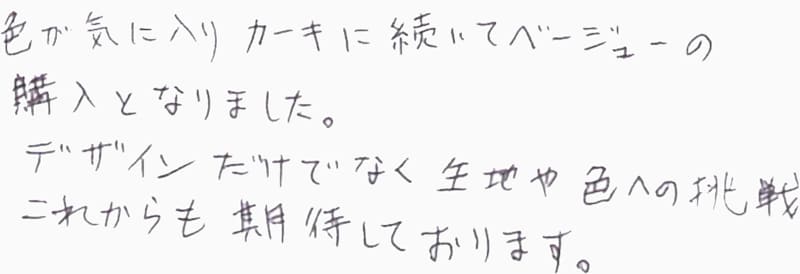 色が気に入りカーキに続いてベージューの
購入となりました。
デザインだけでなく生地や色への挑戦
これからも期待しております。